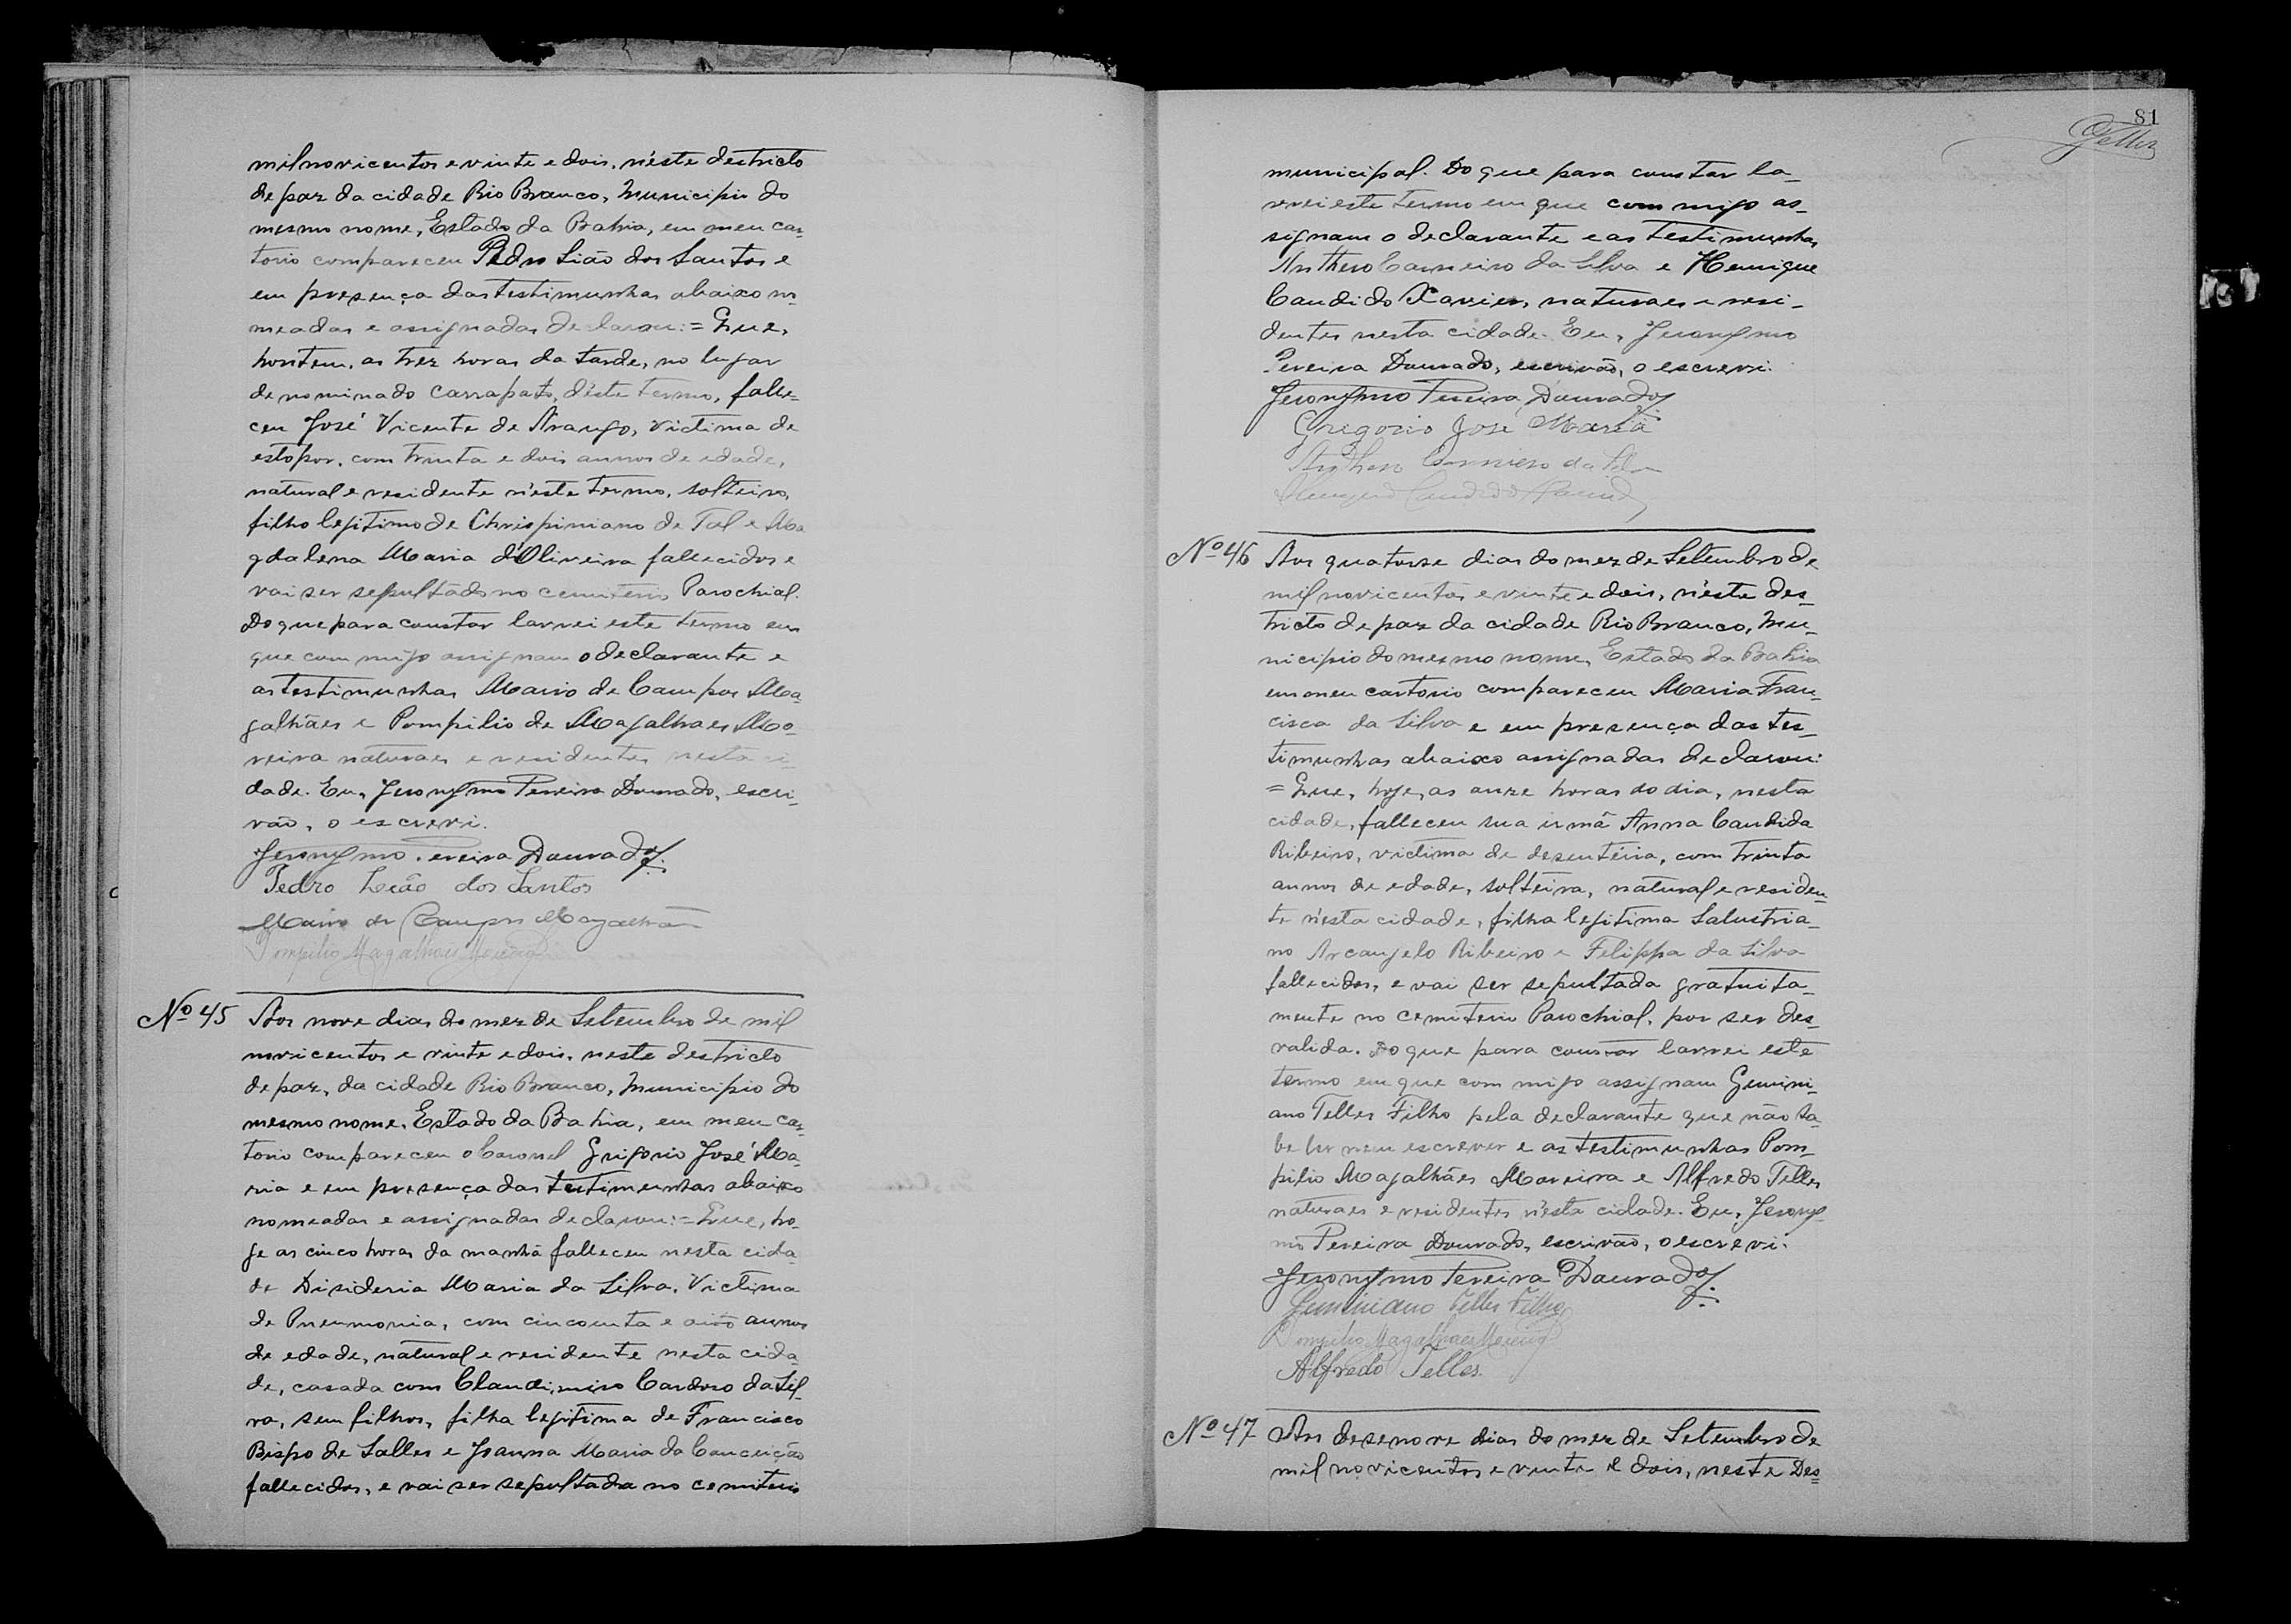 mil novicentos e vinte e dois, n'este destricto
de paz da cidade Rio Branco, Municipio do
mesmo nome, Estado da Bahia, em meu car-
torio compareceu Pedro Lião dos Santos e
em presença das testimunhas abaixo no-
meadas e assignadas declarou:= Que,
hontem, as trez horas da tarde, no lugar
denominado Carrapato, d'este termo, falle-
ceu José Vicente de Araujo, victima de
estopor, com trinta e dois annos de edade,
natural e residente n'este termo, solteiro,
filho legitimo de Chrispiniano de Tal e Ma
gdalena Maria d'Oliveira fallecidos e
vai ser sepultado no cemiterio Parochial.
Do que para constar lavrei este termo em
que com migo assignam o declarante e
as testimunhas Mario de Campos Ma-
galhães e Pompilio de Magalhaes Mo-
reira naturaes e residentes nesta ci-
dade. Eu, Jeronymo Pereira Dourado, escri-
vão, o escrevi.
Jeronymo Pereira Dourado
Pedro Leão dos Santos
Mario de Campos Magalhães
Pompilio Magalhães Moreira
Nº 45 Aos nove dias do mez de Setembro de mil
novicentos e vinte e dois, neste destricto
de paz, da cidade Rio Branco, Municipio do
mesmo nome, Estado da Bahia, em meu car-
torio compareceu o Coronel Grigorio José Ma-
ria e em presença das testimunhas abaixo
nomeadas e assignadas declarou:= Que, ho-
je as cinco horas da manhã falleceu nesta cida-
de Disideria Maria da Silva, Victima
de Pneumonia, com cincoenta e oito annos
de edade, natural e residente nesta cida-
de, casada com Claudimiro Cardoso da Sil-
va, sem filhos, filha legitima de Francisco
Bispo de Salles e Joanna Maria da Conceição
fallecidos, e vai ser sepultada no cemiterio
81
Telles
municipal. Do que para constar la-
vrei este termo em que com migo as-
signam o declarante e as testimunhas
Anthero Carneiro da Silva e Henrique
Candido Xavier, naturaes e resi-
dentes nesta cidade. Eu, Jeronymo
Pereira Dourado, escrivão, o escrevi.
Jeronymo Pereira Dourado
Gregorio José Maria
Anthero Carneiro da Silva
Candido
Nº 46 Aos quatorse dias do mez de Setembro de
mil novicentos e vinte e dois, n'este des-
tricto de paz da cidade Rio Branco, Mu-
nicipio do mesmo nome, Estado da Bahia
em meu cartorio compareceu Maria Fran-
cisca da Silva e em presença das tes-
timunhas abaixo assignadas declarou:
= Que, hoje, as onze horas do dia, nesta
cidade, falleceu sua irmã Anna Candida
Ribeiro, victima de desenteria, com trinta
annos de edade, solteira, natural e residen-
te n'esta cidade, filha legitima Salustria-
no Arcanjelo Ribeiro e Filippa da Silva
fallecidos, e vai ser sepultada gratuita-
mente no cemiterio Parochial, por ser des-
valida. Do que para constar lavrei este
termo em que com migo assignam Gemini-
ano Telles Filho pela declarante que não sa-
be ler nem escrever e as testimunhas Pom-
pilio Magalhães Moreira e Alfredo Telles
naturaes e residentes n'esta cidade. Eu, Jerony-
mo Pereira Dourado, escrivão, o escrevi.
Jeronymo Pereira Dourado
Geminiano Telles Filho
Pompilio Magalhães Moreira
Alfredo Telles
Nº 47 Aos desenove dias do mez de Setembro de
mil novicentos e vinte e dois, neste Des=